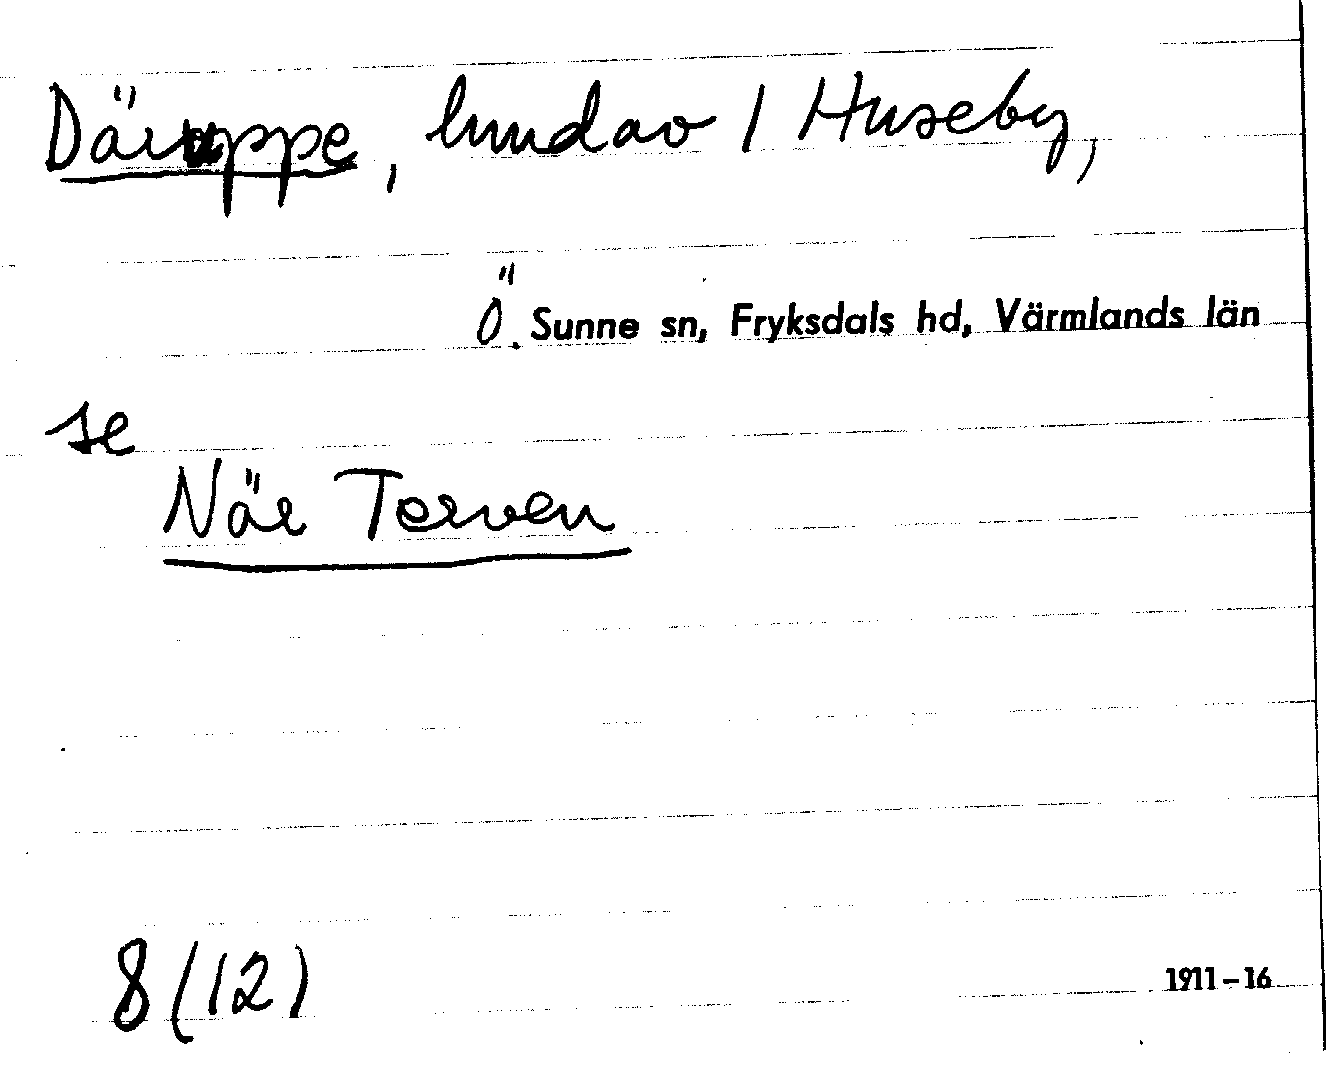 Däruppe, lundav / Huseby,
Ö. Sunne sn, Fryksdals hd, Värmlands län
se
När Terven
8 (12)
1911-16